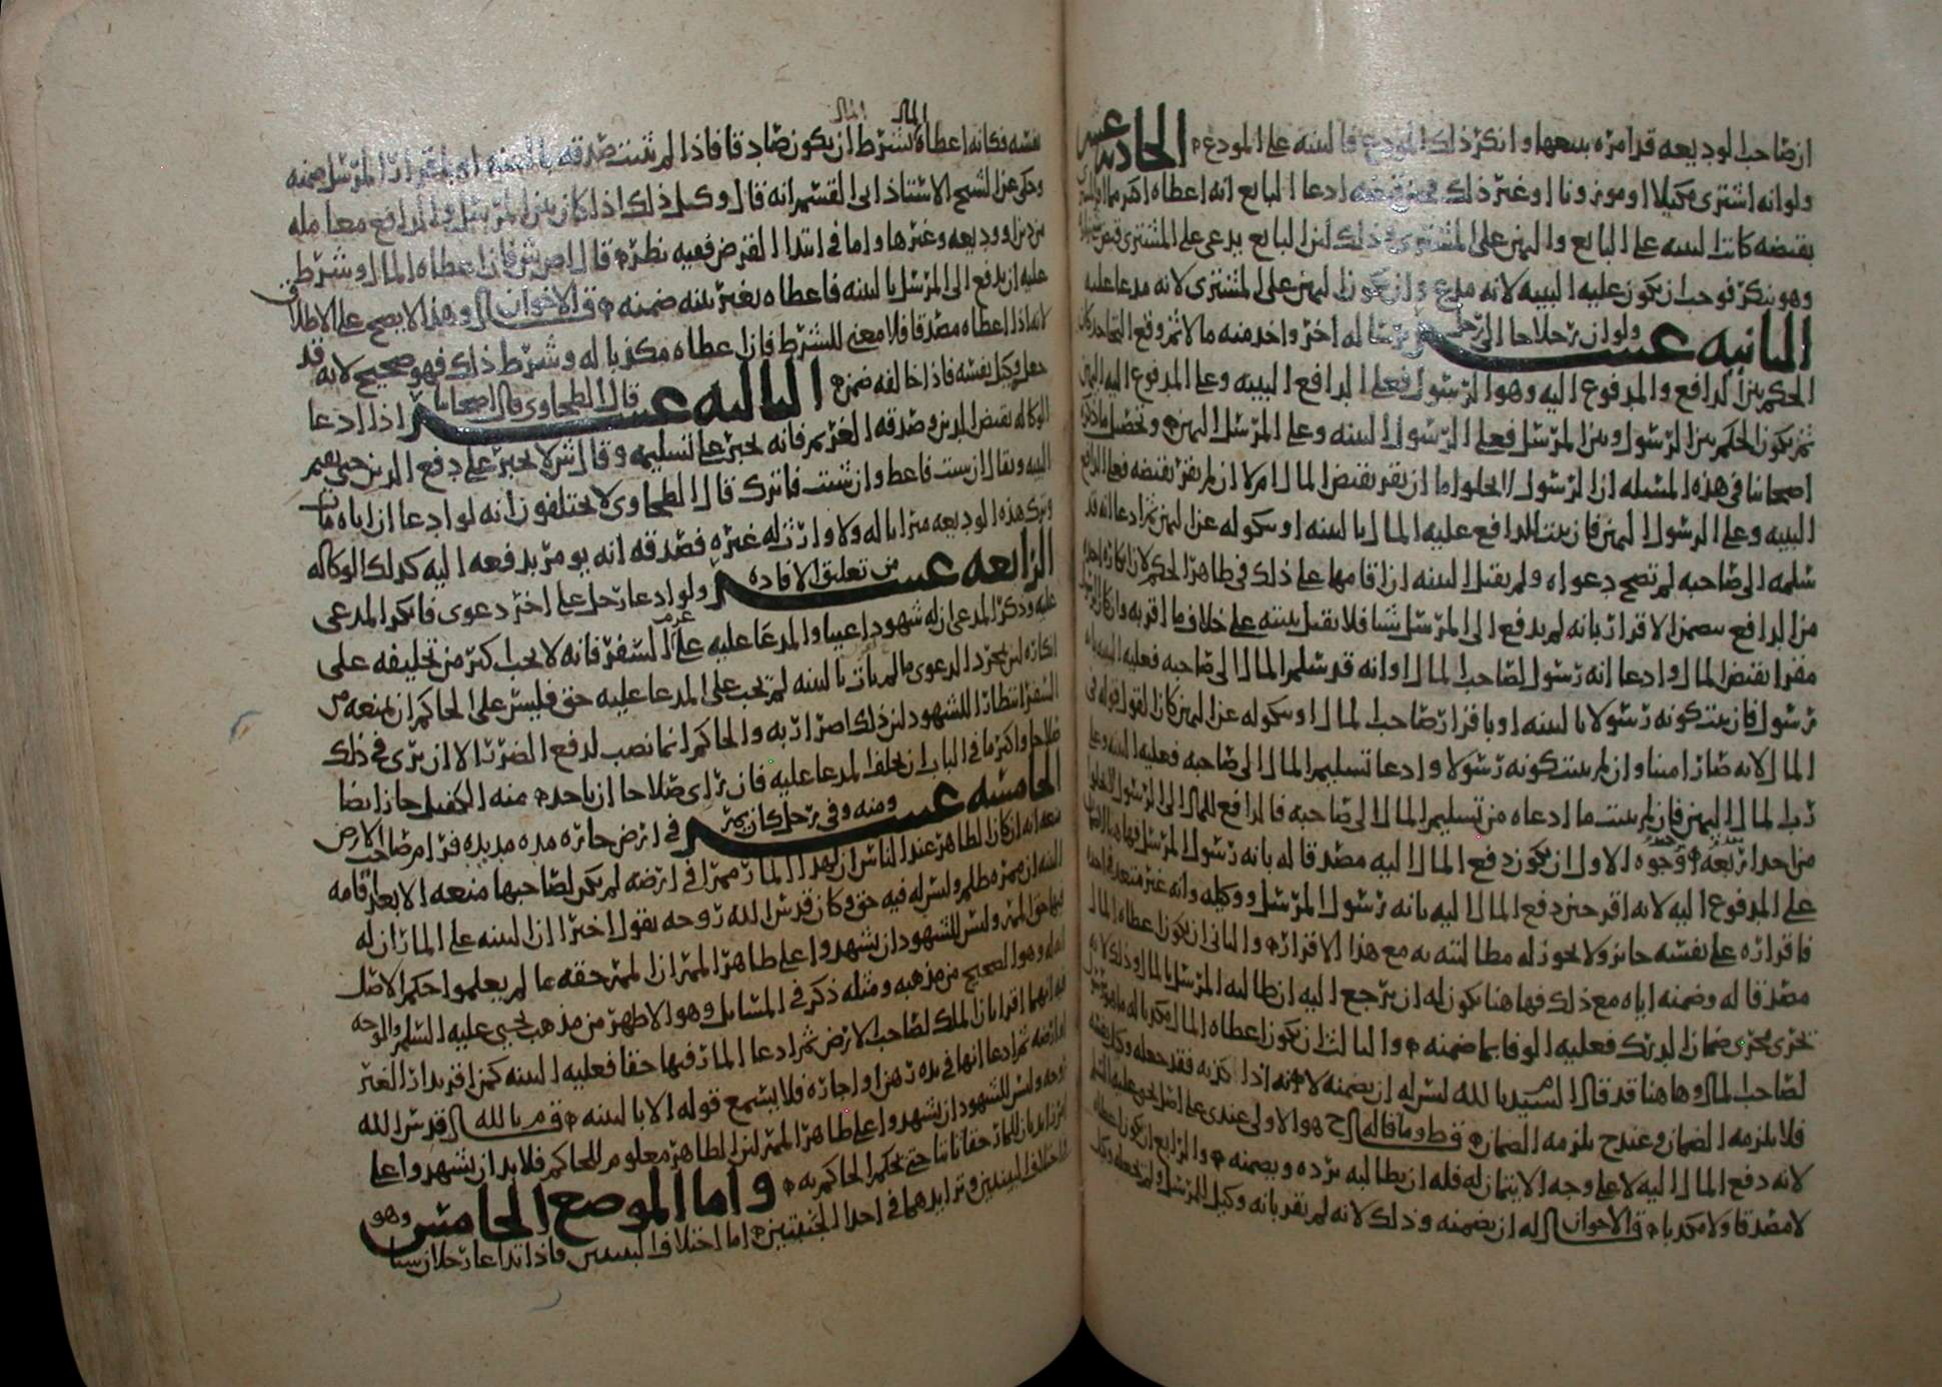 ان صاحب الوديعه قد امره ببيعها وانكر ذلك المودع فالبينه على المودع الحاديه عشر
ولو انه اشترى مكيلا او موزونا او غير ذلك ادعا البايع انه اعطاه اكثر مما
بقبضه كانت البينه على البايع واليمين على المشترى ذلك لان البايع يدعى على المشترى
وهو ينكر فوجب ان يكون عليه البينه لانه مدع وان يكون اليمين على المشترى لانه مدعا عليه
الثانيه عشر ولو ان رجلا جا الى رجل برساله اخر واخذ منه مالا ثم وقع التجاحد كان
الحكم بين الدافع والمدفوع اليه وهو الرسول فعلى الدافع البينه وعلى المدفوع اليه اليمين
ثم يكون الحكم بين الرسول وبين المرسل فعلى الرسول البينه وعلى المرسل اليمين وتحصيل ما ذكره
اصحابنا فى هذه المسله ان الرسول لا يخلو اما ان يقر بقبض المال ام لا ان لم يقر بقبضه فعلى الدافع
البينه وعلى الرسول اليمين فان ثبت للدافع عليه المال بالبينه او بنكوله عن اليمين ثم ادعا انه قد
سلمه الى صاحبه لم تصح دعواه ولم يقبل البينه ان اقامها على ذلك فى ظاهر الحكم لان انكاره
من الدافع يتضمن الاقرار بانه لم يدفع الى المرسل شيا فلا يقبل بينته على خلاف ما اقر به وان كان
مقرا بقبض المال وادعا انه رسول لصاحب المال وانه قد سلم المال الى صاحبه فعليه البينه
رسول فان ثبت كونه رسولا بالبينه او باقرار صاحب المال او بنكوله عن اليمين كان القول قوله فى
المال لانه صار امينا وان لم يثبت كونه رسولا وادعا تسليم المال الى صاحبه فعليه البينه وعلى
رب المال اليمين فان لم يثبت ما ادعاه من تسليم المال الى صاحبه فالدافع للمال الى الرسول لا يخلو
من احد اربعة وجوه الاول ان يكون دفع المال اليه مصدقا له بانه رسول المرسل
على المدفوع اليه لانه اقر حين دفع المال اليه بانه رسول المرسل ووكيله وانه غير متعد
فاقراره على نفسه جايز ولا يجوز له مطالبته به مع هذا الاقرار والثانى ان يكون اعطاه المال
مصدقا له وضمنه اياه مع ذلك فهاهنا يكون له ان يرجع اليه ان طالبه المرسل بالمال وذلك لانه
يجرى مجرى ضمان الدرك فعليه الوفا بما ضمنه والثالث ان يكون اعطاه المال مكذبا له
لصاحب المال وهاهنا قد قال السيد ط بالله ليس له ان يضمنه لانه اذا كذبه فقد جعله وكيل نفسه
فلا يلزمه الضمان وعند ح يلزمه الضمان ق ط وما قاله ح هو الاولى عندى على اصل يحيى عليه السلم
لانه دفع المال اليه لا على وجه الايتمان له فله ان يطالبه برده ويضمنه والرابع ان يكون اعطاه
لا مصدقا ولا مكذبا ق الاخوان له ان يضمنه وذلك لانه لم يقر بانه وكيل المرسل ولم يجعله وكيل
نفسه فكانه اعطاه المال بشرط ان يكون صادقا فاذا لم يثبت صدقه بالبينه او باقرار المرسل ضمنه
وحكى عن الشيخ الاستاذ ابى القسم انه قال وكل ذلك اذا كان بين المرسل والدافع معامله
من دين او وديعه وغيرها واما فى ابتدا القرض ففيه نظر قال اص ش فان اعطاه المال وشرط
عليه ان يدفع الى المرسل بالبينه فاعطاه بغير بينه ضمنه ق الاخوان وهذا لا يصح على الاطلاق
لانه اذا اعطاه مصدقا فلا معنى للشرط فان اعطاه مكذبا له وشرط ذلك فهو صحيح لانه قد
جعل وكيل نفسه فاذا خالفه ضمن الثالثه عشر قال الطحاوى قال اصحابنا اذا ادعا
الوكاله بقبض الدين وصدقه الغريم فانه يجبر على تسليمه وقال ش لا يجبر على دفع الدين حتى يقيم
البينه ويقال ان شيت فاعط وان شيت فاترك قال الطحاوى لا يختلفون انه لو ادعا ان اباه مات
وترك هذه الوديعه ميراثا له ولا وارث له غيره فصدقه انه يومر بدفعه اليه كذلك الوكاله
الرابعه عشر من تعليق الافاده ولو ادعا رجل على اخر دعوى فانكر المدعى
عليه وذكر المدعى ان له شهودا غيبا والمدعا عليه عزم على السفر فانه لا يجب اكثر من تحليفه على
انكاره لان مجرد الدعوى ما لم يات بالبينه لم يجب على المدعا عليه حق فليس على الحاكم ان يمنعه من
السفر انتظارا للشهود لان ذلك اضرار به والحاكم انما نصب لدفع الضرر الا ان يرى فى ذلك
صلاحا واكثر ما فى الباب ان يحلف المدعا عليه فان راى صلاحا ان ياخذ منه الكفيل جاز ايضا
الخامسه عشر ومنه وفى رجل كان يمر فى ارض جاره مده مديده فرام صاحب الارض
منعه انه ان كان الظاهر عند الناس ان لهذا المار ممرا فى ارضه لم يكن لصاحبها منعه الا بعد اقامه
البينه ان ممره ظلم وليس له فيه حق وكان قدس الله روحه يقول اخيرا ان البينه على المار ان له
فيها حق الممر وليس للشهود ان يشهدوا على ظاهر الممر ان الممر حقه ما لم يعلموا حكم الاصل
وهو الصحيح من مذهبه ومثله ذكر فى المسايل وهو الاظهر من مذهب يحيى عليه السلم والوجه
فيه انهما اقرا بان الملك لصاحب الارض ثم ادعا المار فيها حقا فعليه البينه كمن اقر بدار الغير
او ارضه ثم ادعا انها فى يده رهن او اجاره فلا يسمع قوله الا بالبينه ق م بالله قدس الله
روحه وليس للشهود ان يشهدوا على ظاهر الممر لان الظاهر معلوم للحاكم فلا بد ان يشهدوا على
للمار حقا ثابتا حتى يحكم الحاكم به واما الموضع الخامس وهو
اختلاف البينتين وترايدهما فى احدا الجنبتين اما اختلاف البينتين فاذا تداعا رجلان شيا